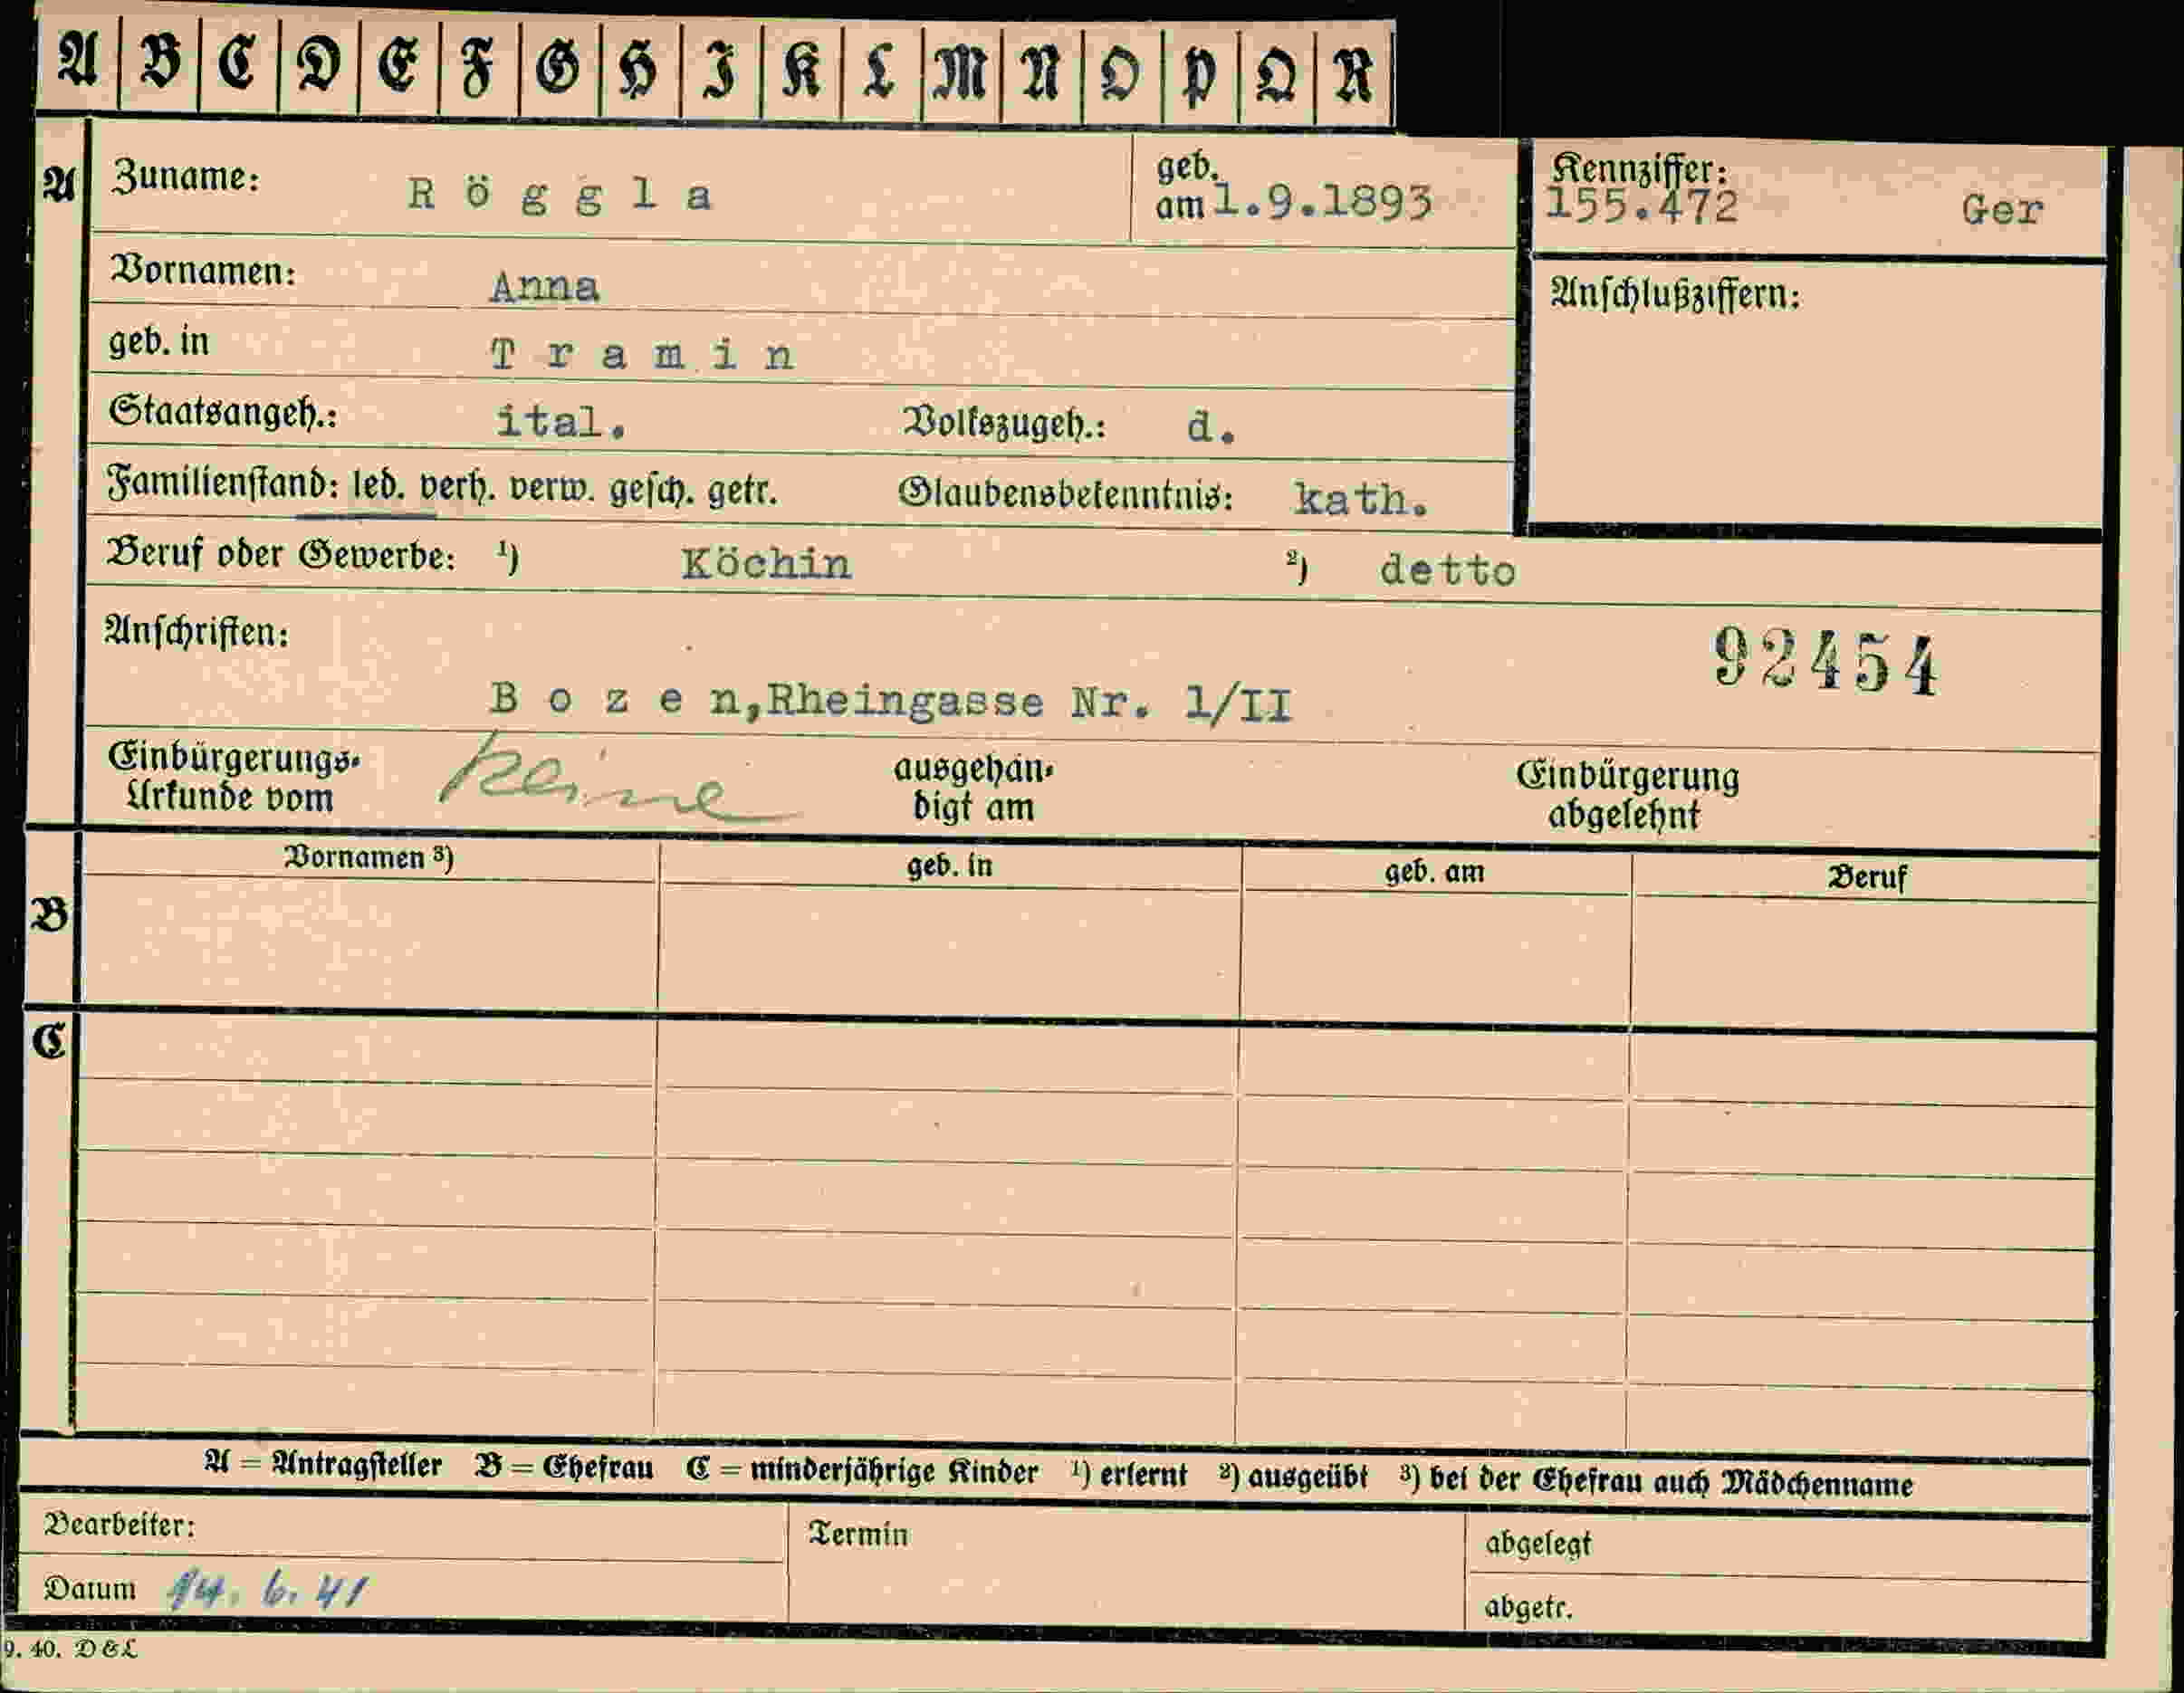 A B C D E F G H I K L M N O P Q R
A Zuname: Röggla geb. am 1.9.1893 Kennziffer: 155.472 Ger
Vornamen: Anna Anschlußziffern:
geb. in Tramin
Staatsangeh.: ital. Volkszugeh.: d.
Familienstand: led. verh. verw. gesch. getr. Glaubensbekenntnis: kath.
Beruf oder Gewerbe: ¹) Köchin ²) detto
Anschriften: 92454
Bozen,Rheingasse Nr. 1/II
Einbürgerungs-Urkunde vom keine ausgehändigt am Einbürgerung abgelehnt
Vornamen ³) geb. in geb. am Beruf
B
C
A = Antragsteller B = Ehefrau C = minderjährige Kinder ¹) erlernt ²) ausgeübt ³) bei der Ehefrau auch Mädchenname
Bearbeiter: Termin abgelegt
Datum 14. 6. 41 abgetr.
9. 40. D & L